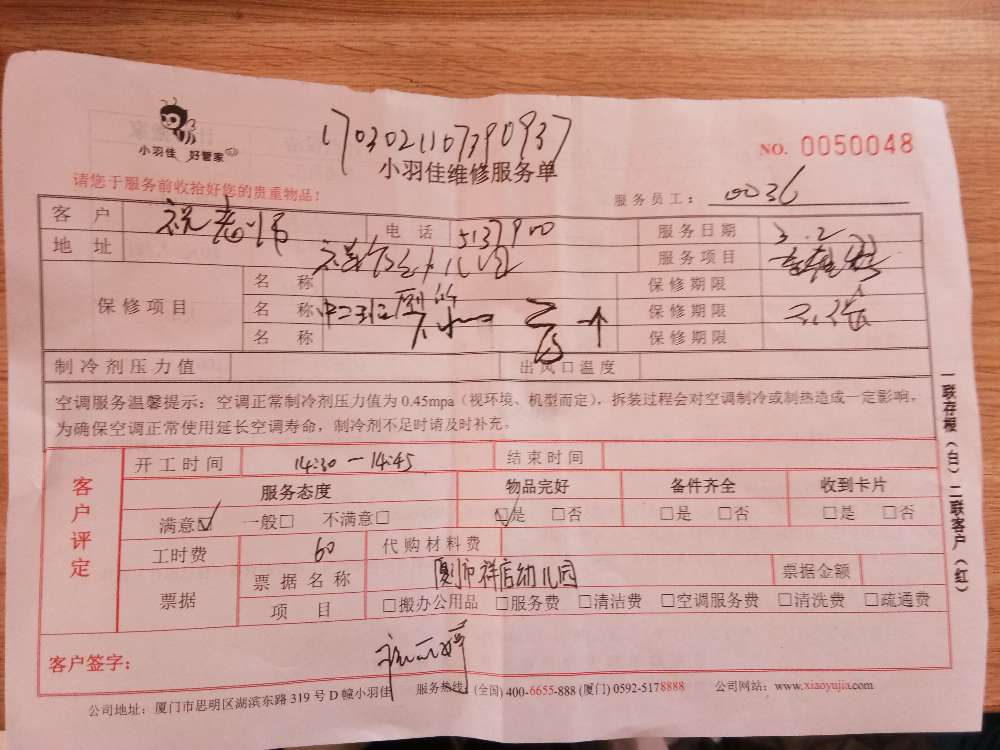 1703021107390937
小羽佳 好管家
小羽佳维修服务单
NO. 0050048
请您于服务前收拾好您的贵重物品！
服务员工： 0036
客户 祝老师 电话 5137900 服务日期 3.2
地址 服务项目
保修项目 名称 保修期限
名称 保修期限
名称 保修期限
制冷剂压力值 出风口温度
空调服务温馨提示：空调正常制冷剂压力值为 0.45mpa（视环境、机型而定），拆装过程会对空调制冷或制热造成一定影响，
为确保空调正常使用延长空调寿命，制冷剂不足时请及时补充。
客户评定
开工时间 14:30－14:45 结束时间
服务态度 物品完好 备件齐全 收到卡片
满意☑ 一般□ 不满意□ ☑是 □否 □是 □否 □是 □否
工时费 60 代购材料费
票据 票据名称 厦门市祥店幼儿园 票据金额
项目 □搬办公用品 □服务费 □清洁费 □空调服务费 □清洗费 □疏通费
客户签字：
公司地址：厦门市思明区湖滨东路 319 号 D 幢小羽佳 服务热线：(全国) 400-6655-888 (厦门) 0592-5178888 公司网站：www.xiaoyujia.com
一联存根（白）二联客户（红）